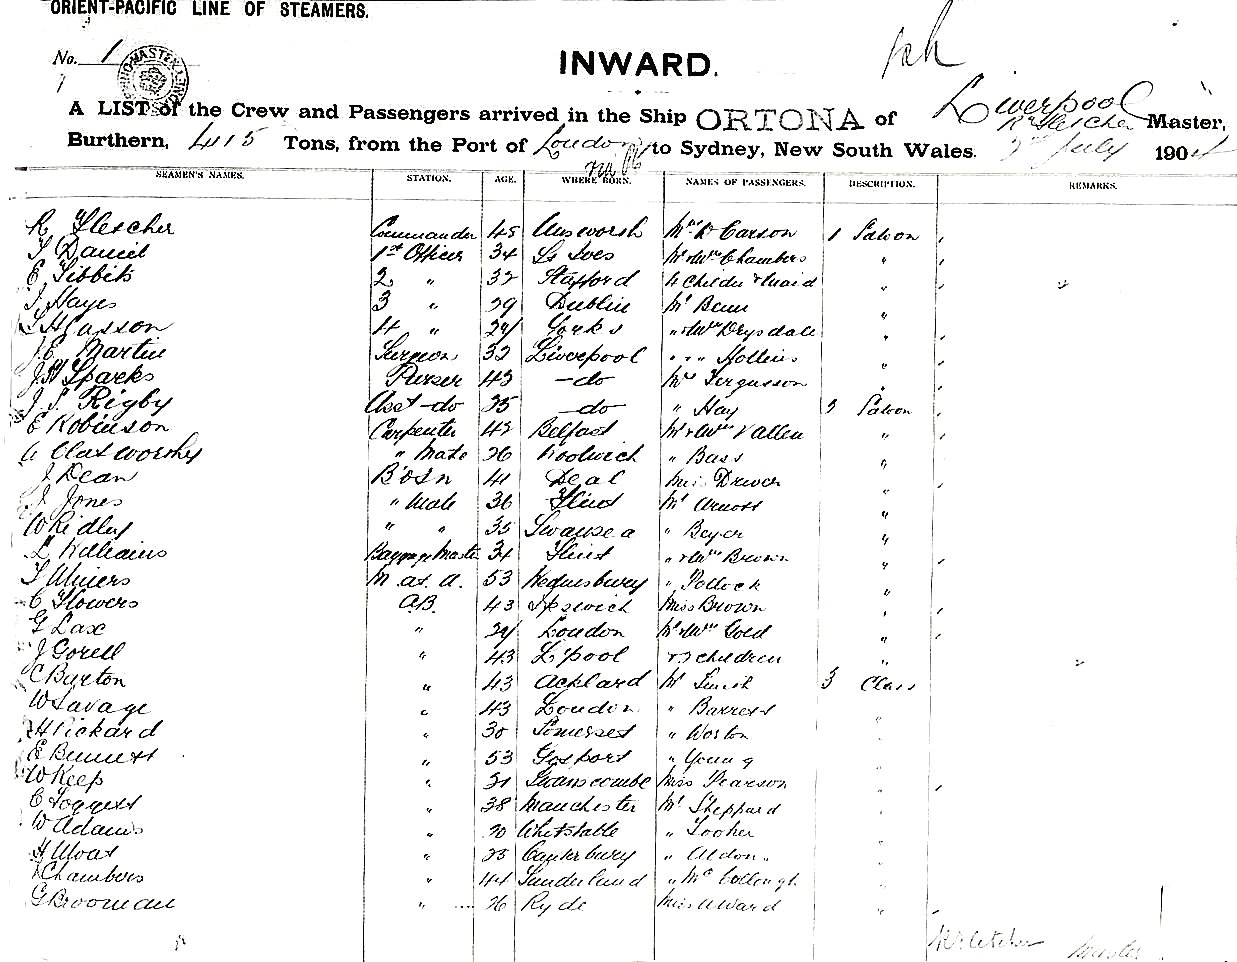 ORIENT-PACIFIC LINE OF STEAMERS.
No. 1
INWARD.
A LIST of the Crew and Passengers arrived in the Ship ORTONA of Liverpool
R. Fletcher Master,
Burthern, 4115 Tons, from the Port of London to Sydney, New South Wales. 2nd July 1904
SEAMEN'S NAMES. STATION. AGE. WHERE BORN. NAMES OF PASSENGERS. DESCRIPTION. REMARKS.
R Fletcher Commander 45 Mr R Carson 1 Saloon
Daniel 1st Officer 34 St Ives Mr & Mrs Chambers "
E Tibbits 2 " 32 Stafford 4 Childn & Maid "
Hayes 3 " 29 Dublin Mr "
Casson 4 " Yorks " & Mrs Drysdale "
J.E. Martin Surgeon 32 Liverpool " " " Hollins "
Sparks Purser 43 - do Mr Fergusson "
J S Rigby Asst - do 25 - do " Hay 2 Saloon
E Robinson Carpenter 42 Belfast Mr & Mrs Vallen "
Clatworthy " Mate 26 Woolwich " Bass "
J Dean Bosn 41 Deal Miss Driver "
J Jones " Mate 36 Flint Mr Arnott "
W Ridley " " 35 Swansea " Beyer "
L Williams Baggage Master 34 Flint " & Mrs Brown "
M. at. A. 53 " Pollock "
C Flowers A.B. 43 Ipswich Miss Brown "
G Lax " London Mr & Mrs Gold "
J Gorell " 43 L'pool & 7 children "
C Burton " 43 Ackland Mr 3 Class
W Savage " 43 London " Barrett "
H Pickard " 30 Somerset " Worton "
E Bennett " 53 Gosport " Young "
W Keep " 21 Swanscombe Miss Pearson "
C Foggett " 38 Manchester Mr Sheppard "
W Adams " Whitstable " Tooher "
H Moat " 23 Canterbury " Aldon "
Chambers " 44 Sunderland " McCollough "
G Brooman " 26 Ryde Miss A Ward "
R Fletcher Master